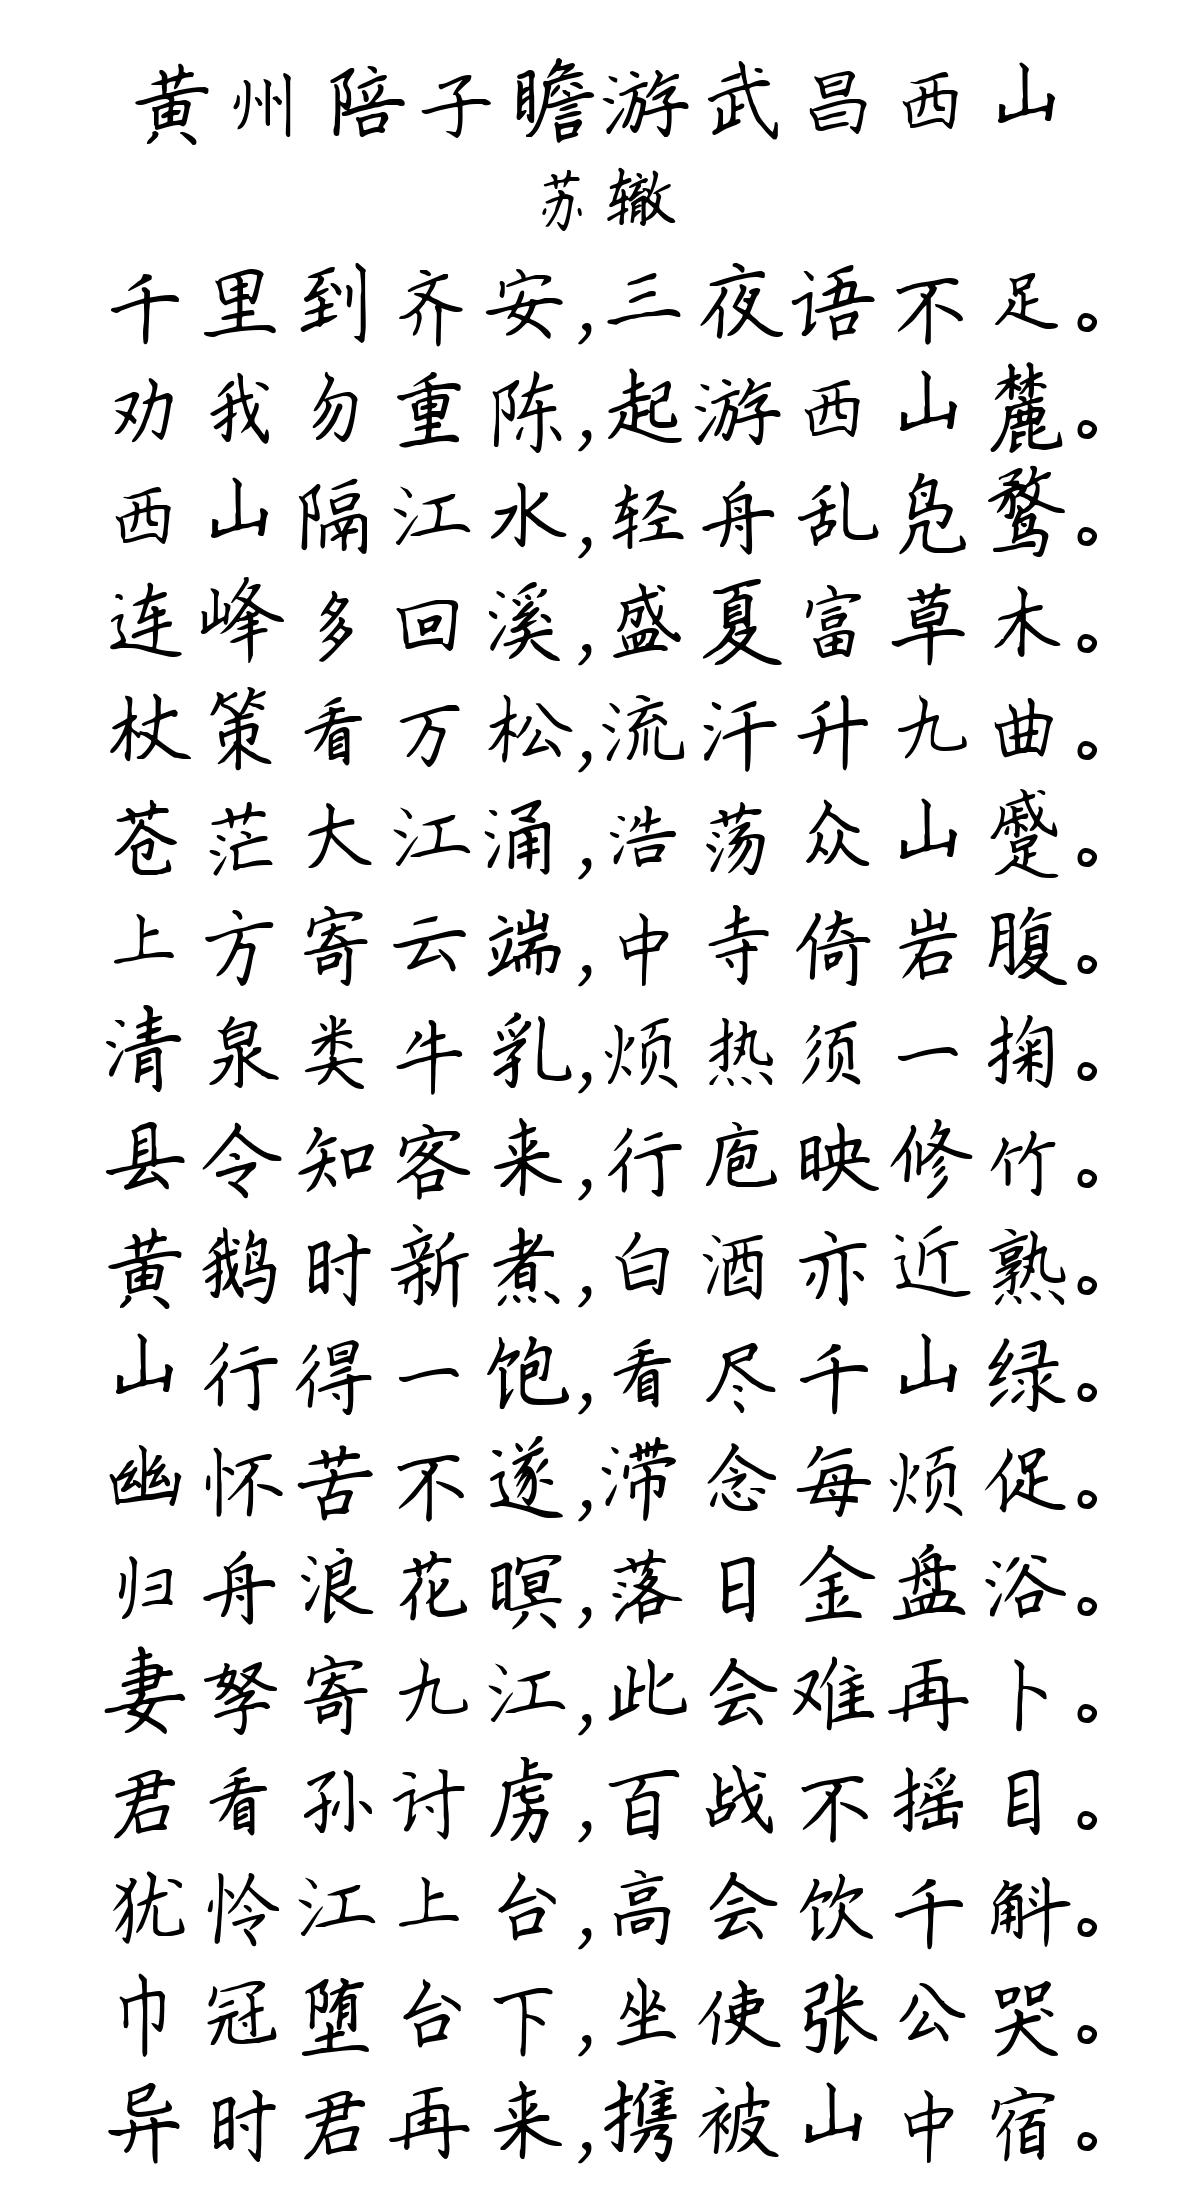 黄州陪子瞻游武昌西山
苏辙
千里到齐安,三夜语不足。
劝我勿重陈,起游西山麓。
西山隔江水,轻舟乱凫鹜。
连峰多回溪,盛夏富草木。
杖策看万松,流汗升九曲。
苍茫大江涌,浩荡众山蹙。
上方寄云端,中寺倚岩腹。
清泉类牛乳,烦热须一掬。
县令知客来,行庖映修竹。
黄鹅时新煮,白酒亦近熟。
山行得一饱,看尽千山绿。
幽怀苦不遂,滞念每烦促。
归舟浪花暝,落日金盘浴。
妻孥寄九江,此会难再卜。
君看孙讨虏,百战不摇目。
犹怜江上台,高会饮千斛。
巾冠堕台下,坐使张公哭。
异时君再来,携被山中宿。